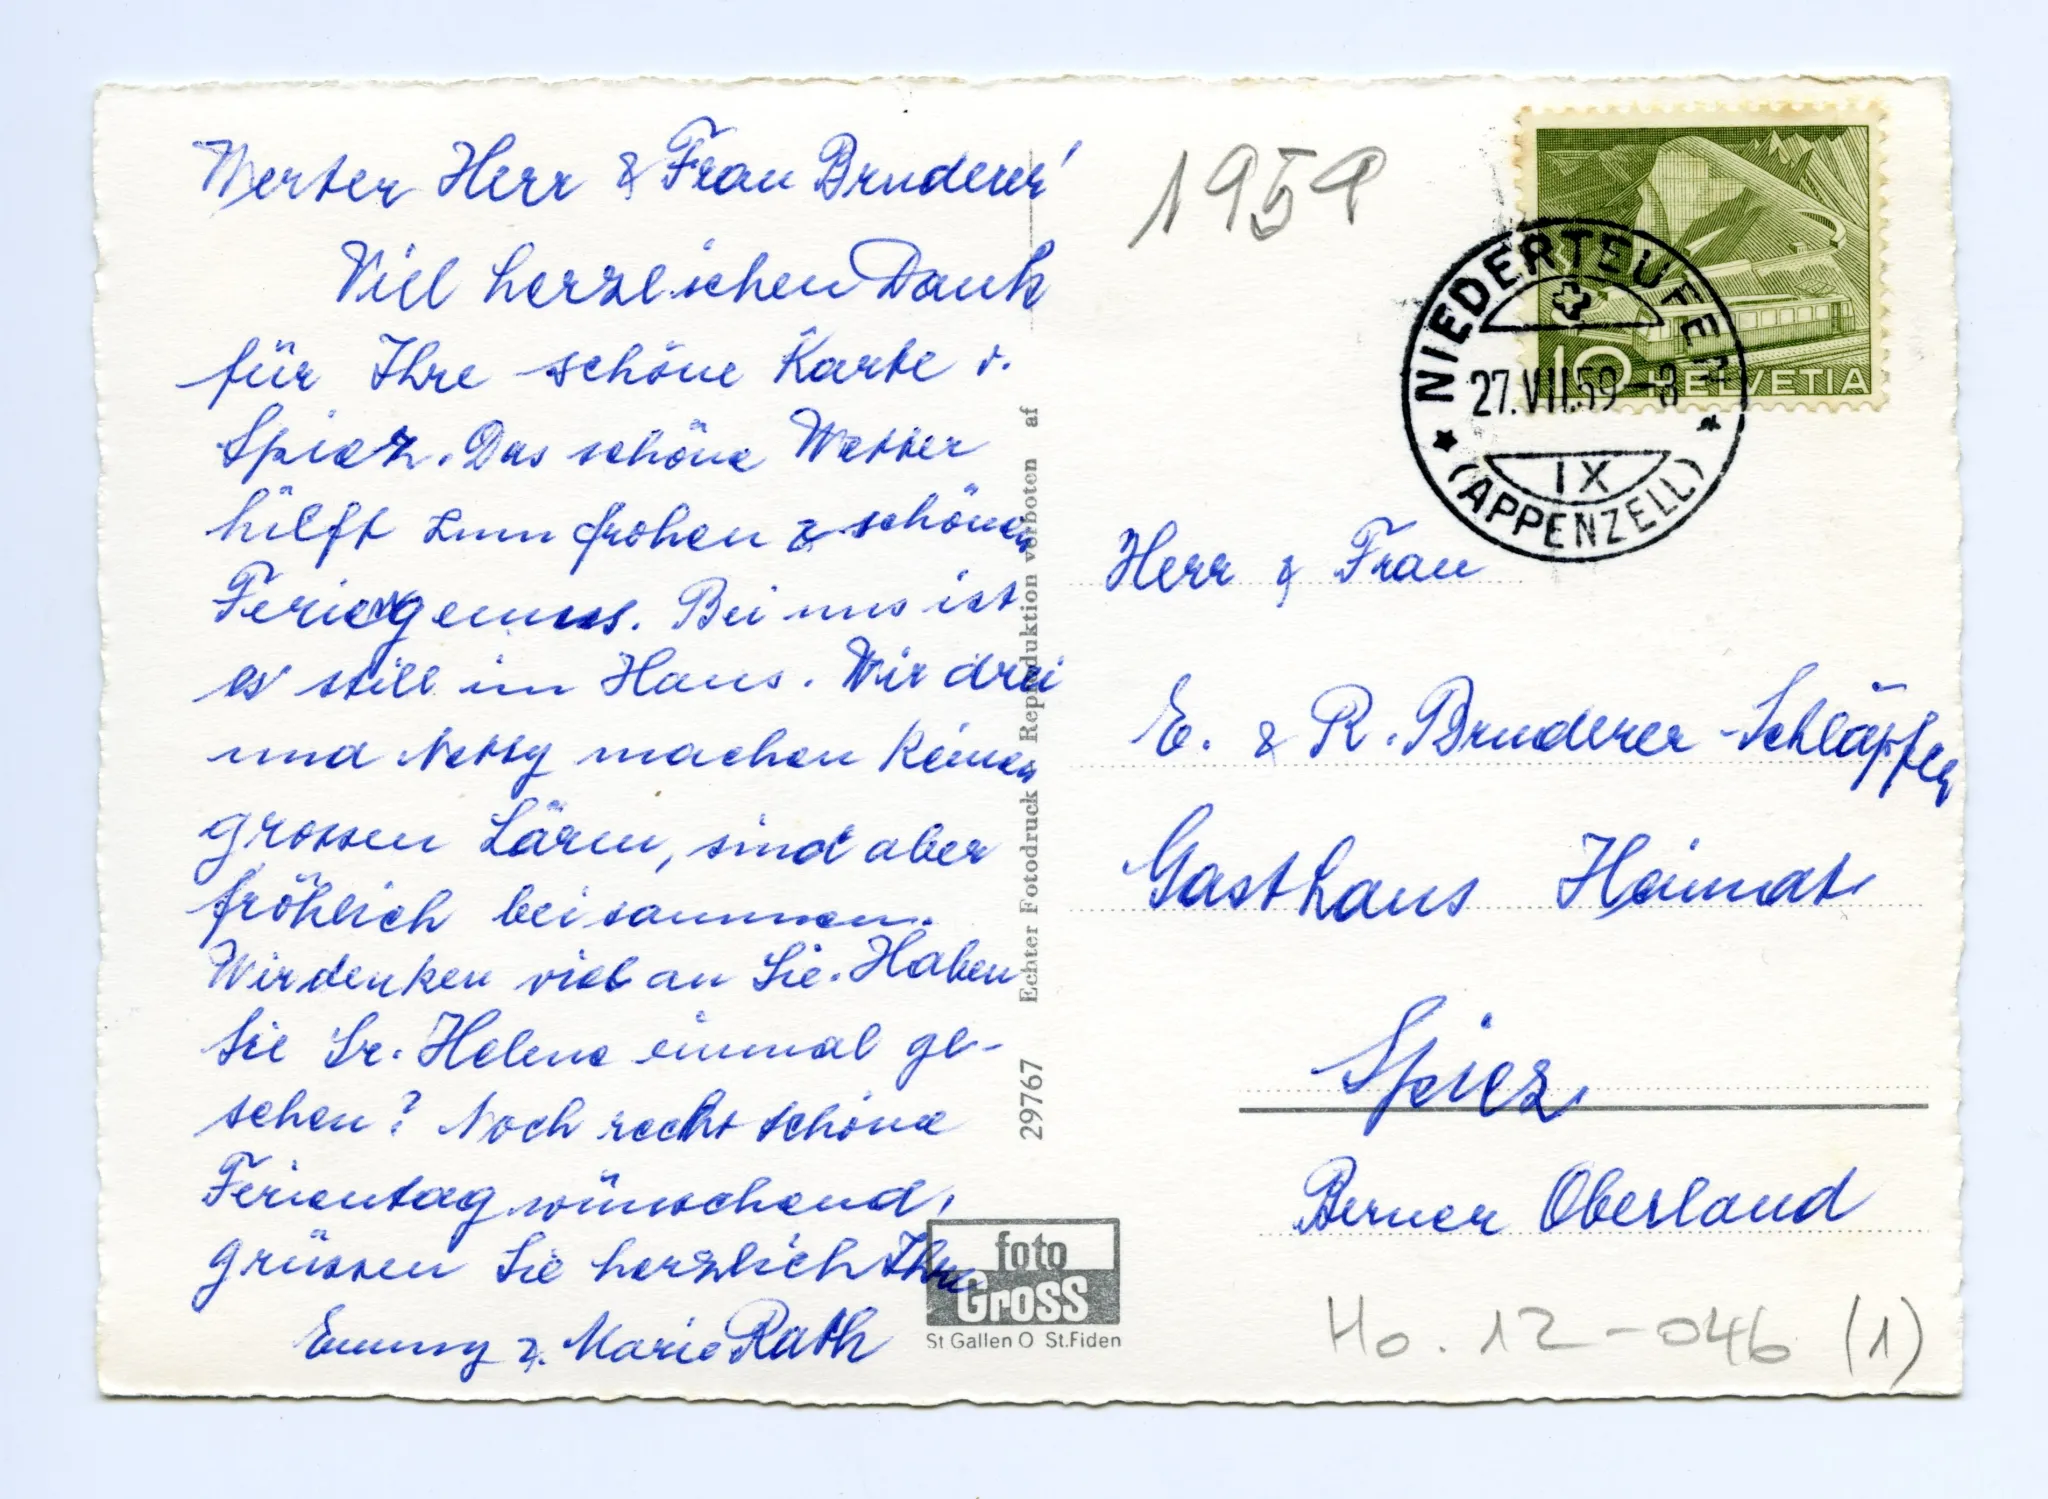 Werter Herr & Frau Bruderer!
Viel herzlichen Dank
für Ihre schöne Karte v.
Spiez. Das schöne Wetter
hilft zum frohen & schönen
Feriengenuss. Bei uns ist
es still im Haus. Wir drei
und Netty machen keinen
grossen Lärm, sind aber
fröhlich beisammen.
Wir denken viel an Sie. Haben
Sie Sr. Helene einmal ge-
sehen? Noch recht schöne
Ferientag wünschend,
grüssen Sie herzlich Ihre
Emmy & Marie Rath
29767 Echter Fotodruck Reproduktion verboten af
foto
Gross
St Gallen O St.Fiden
1959
NIEDERTEUFEN
27.VII.59-8
IX
(APPENZELL)
10 HELVETIA
Herr & Frau
E. & R. Bruderer-Schläpfer
Gasthaus Heimat
Spiez
Berner Oberland
Ho. 12-046 (1)